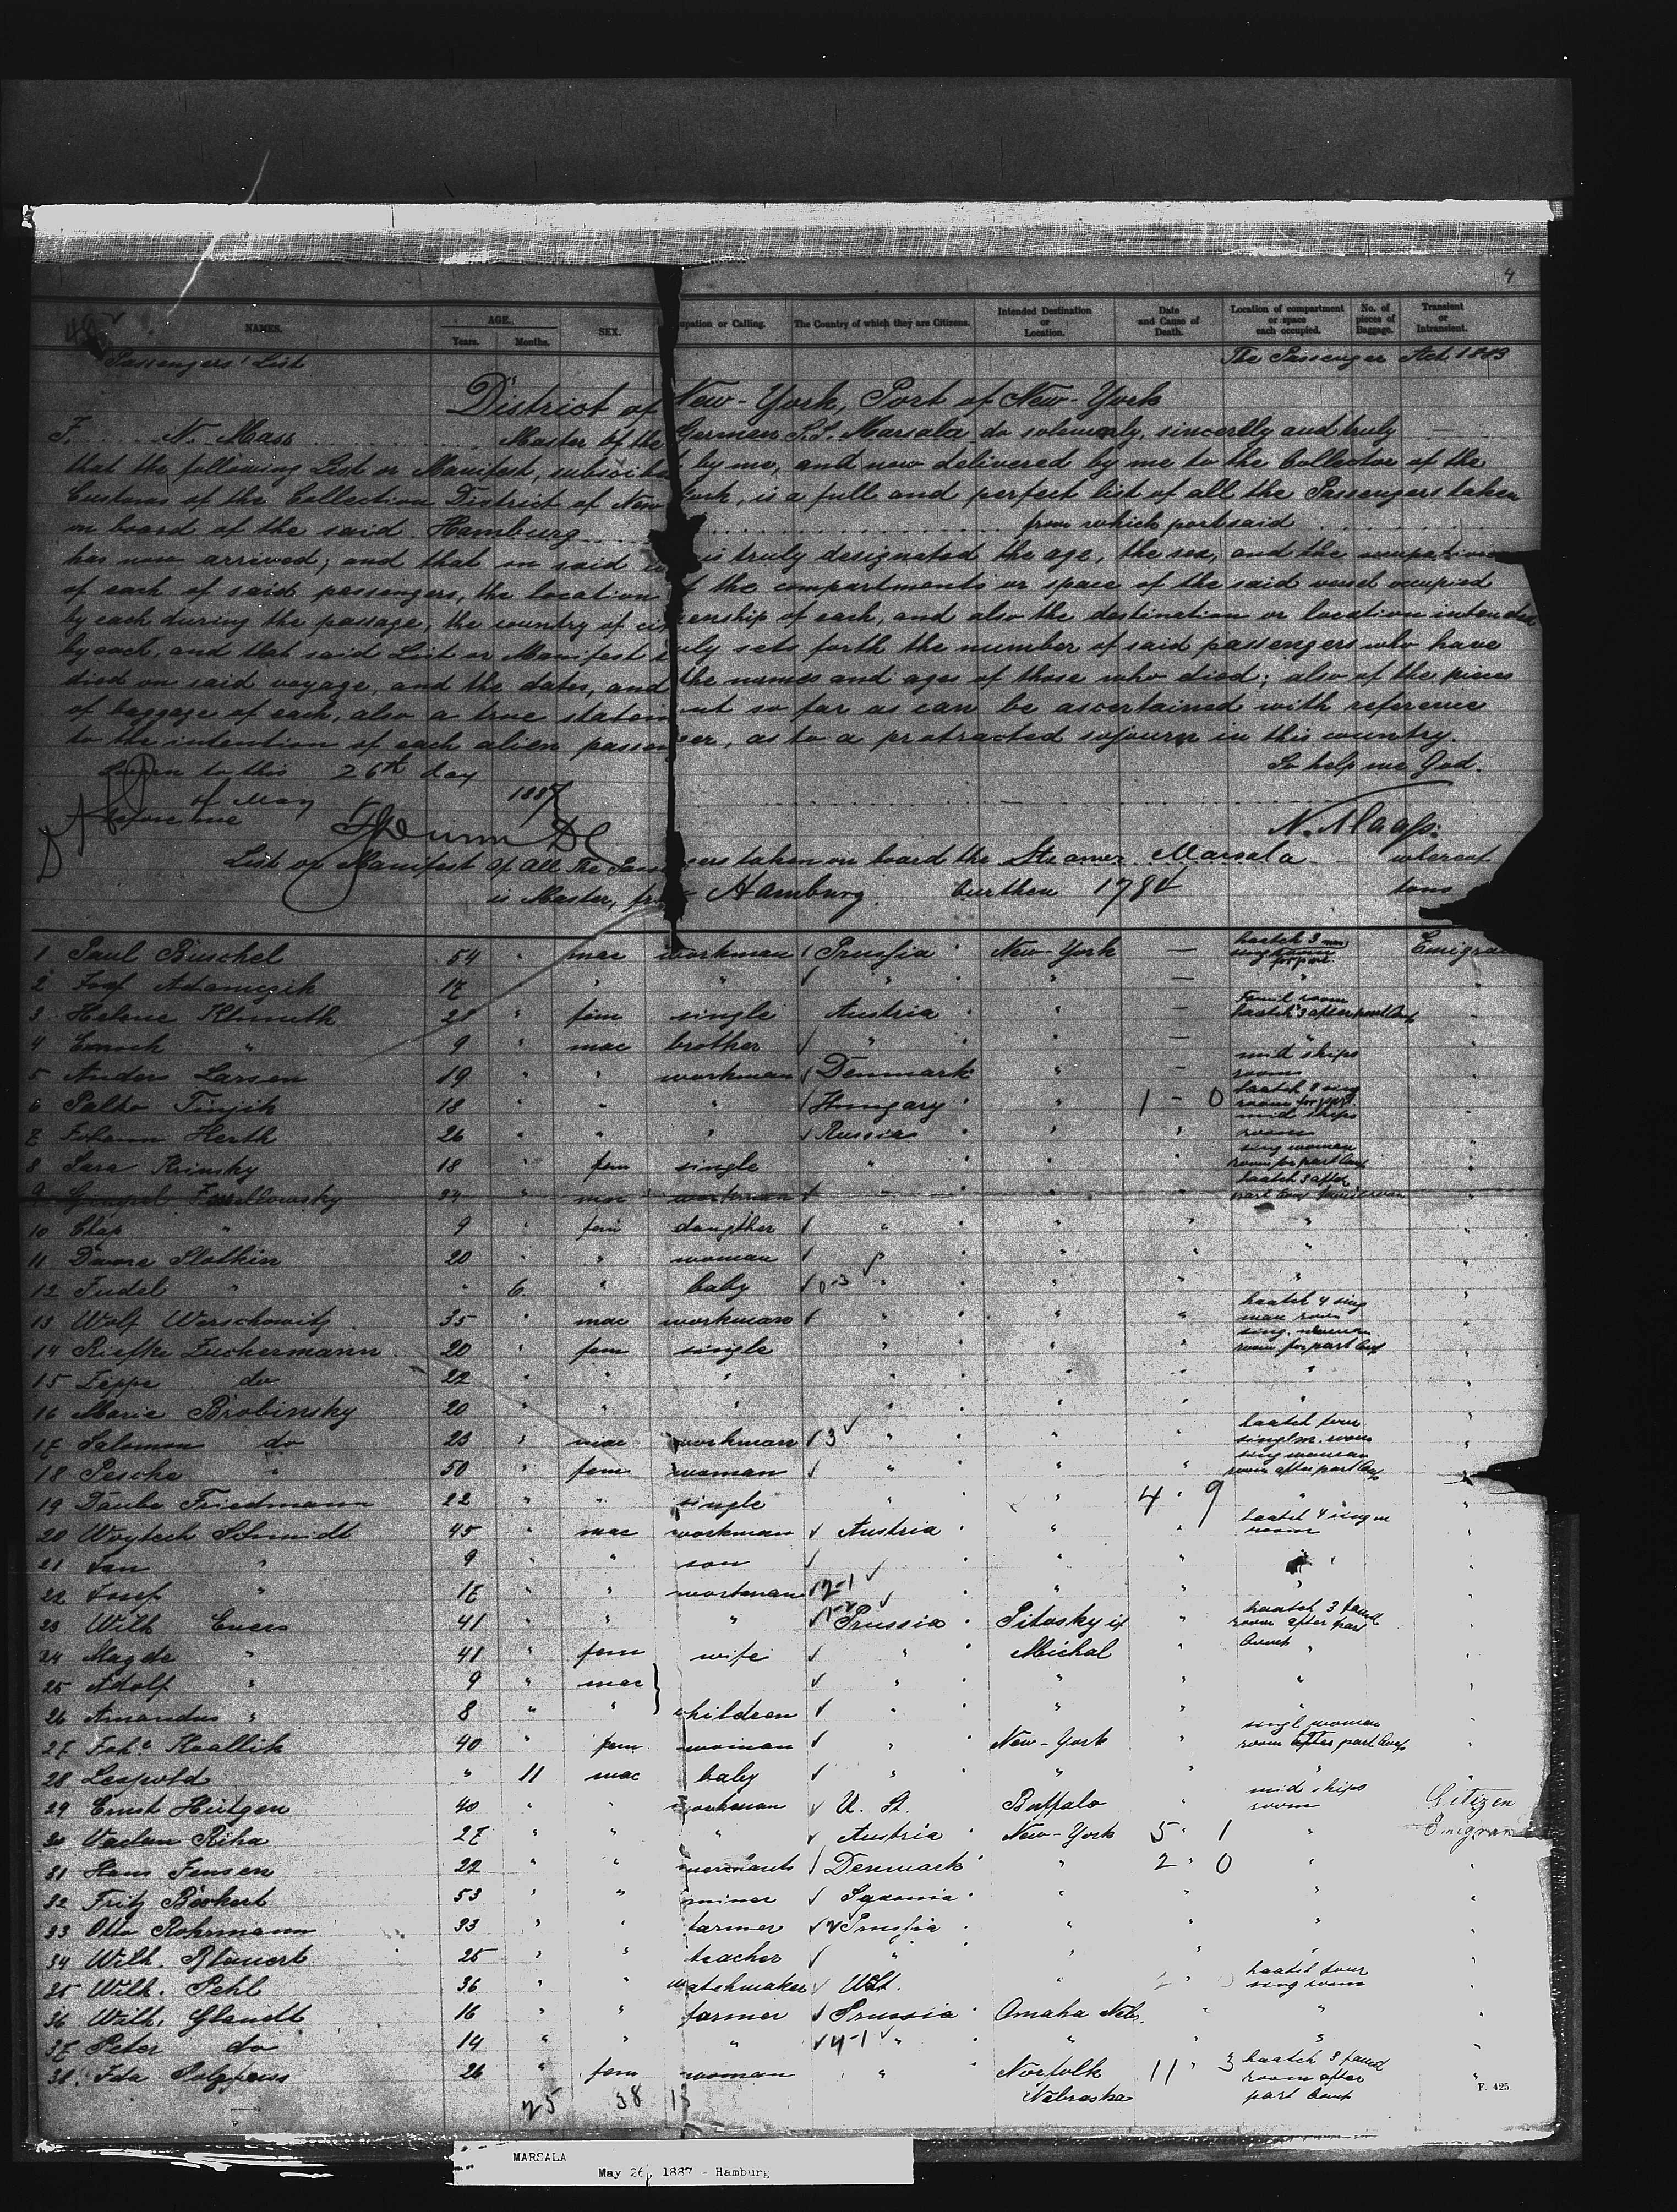 4
NAMES. AGE. Years. Months. SEX. upation or Calling. The Country of which they are Citizens. Intended Destination or Location. Date and Cause of Death. Location of compartment or space each occupied. No. of pieces of Baggage. Transient or Intransient.
Passengers' List The Passenger Act. 1883
District of New-York, Port of New-York
N. Mass Master of the German S.S. Marsala do solemnly, sincerely and truly
that the following List or Manifest, by me, and now delivered by me to the Collector of the
Customs of the Collection District of New York, is a full and perfect list of all the Passengers taken
on board of the said Hamburg from which port said
has now arrived; and that on said is truly designated the age, the sex, and the occupation
of each of said passengers, the location of the compartments or space of the said vessel occupied
by each during the passage, the country of citizenship of each, and also the destination or location intended
by each, and that said List or Manifest truly sets forth the number of said passengers who have
died on said voyage, and the dates, and the names and ages of those who died; also of the pieces
of baggage of each, also a true statement so far as can be ascertained with reference
to the intention of each alien passenger, as to a protracted sojourn in this country.
Sworn to this 26th day So help me God.
of May 1887
before me N. Maass.
List or Manifest Of All The Passengers taken on board the Steamer Marsala whereof
is Master, from Hamburg. burthen 1784 tons
1 Paul Büschel 54 " mac workman Prussia New-York — haatch 3 Emigran
2 Josf Adamczik 17 " " " " — "
3 Helene Klimuth 28 " fem single Austria " — Famil room haatch 3 after part
4 Enoch " 9 " mac brother " " — "
5 Anders Larsen 19 " " workman Denmark " — mid ships room
6 Palko 18 " " " Hungary " 1 - 0 haatch
7 Johann Herth 26 " " " Russia " " mid ships room
8 Sara Krinsky 18 " fem single " " sing woman room for part
9 24 " mac workman " " haatch 3 after part
10 Chaje " 9 " fem daugther " " " "
11 Dwore Slothin 20 " " woman " " " "
12 Judel " " 6 " baby 0-3 " " " "
13 Wolf Werschowitz 35 " mac workman " " " haatch 4 sing man room
14 Riefke Zuchermann 20 " fem single " " " sing. woman room for part
15 Zeppe do 22 " " " " " " "
16 Marie Brobinsky 20 " " " " " " "
17 Salomon do 23 " mac workman 3 " " " haatch four singl m. room
18 Pesche " 50 " fem woman " " " sing woman room after part
19 Taube Friedmann 22 " " single " " 4 " 9 "
20 Woytech Schmidt 45 " mac workman Austria " " haatch 4 sing m room
21 Jan " 9 " " son " " "
22 Josef " 17 " " workman 2-1 " " "
23 Wilh Evers 41 " " " Prussia Pitosky if " haatch 3 famil room after part
24 Magde " 41 " fem wife " Michal " "
25 Adolf " 9 " mac " " " "
26 Amandus " 8 " " children " " "
27 Joh.a Krallik 40 " fem woman " New-York " singl woman room after part
28 Leopold " 11 mac baby " " " "
29 Ernst Hütgen 40 " " workman U. St. Buffalo " mid ships room Citizen
30 Vaclav Riha 27 " " " Austria New-York 5 " 1 " Emigran
31 Hans Jensen 22 " " merchants Denmark " 2 " 0 "
32 Fritz Beckert 53 " " miner Saxonia " " "
33 Otto Rohrmann 33 " " farmer Prussia " " "
34 Wilh. 25 " " teacher " " " "
35 Wilh. Pehl 36 " " watchmaker U.St. " haatch four sing room
36 Wilh. Glandt 16 " " farmer Prussia Omaha Nebr. " "
37 Peter do 14 " " " 4-1 " " " "
38 Ida 26 " fem woman " Norfolk 11 " 3 haatch 3 famil
Nebraska room after
part
25 38 13
F. 425
MARSALA
May 26, 1887 - Hamburg